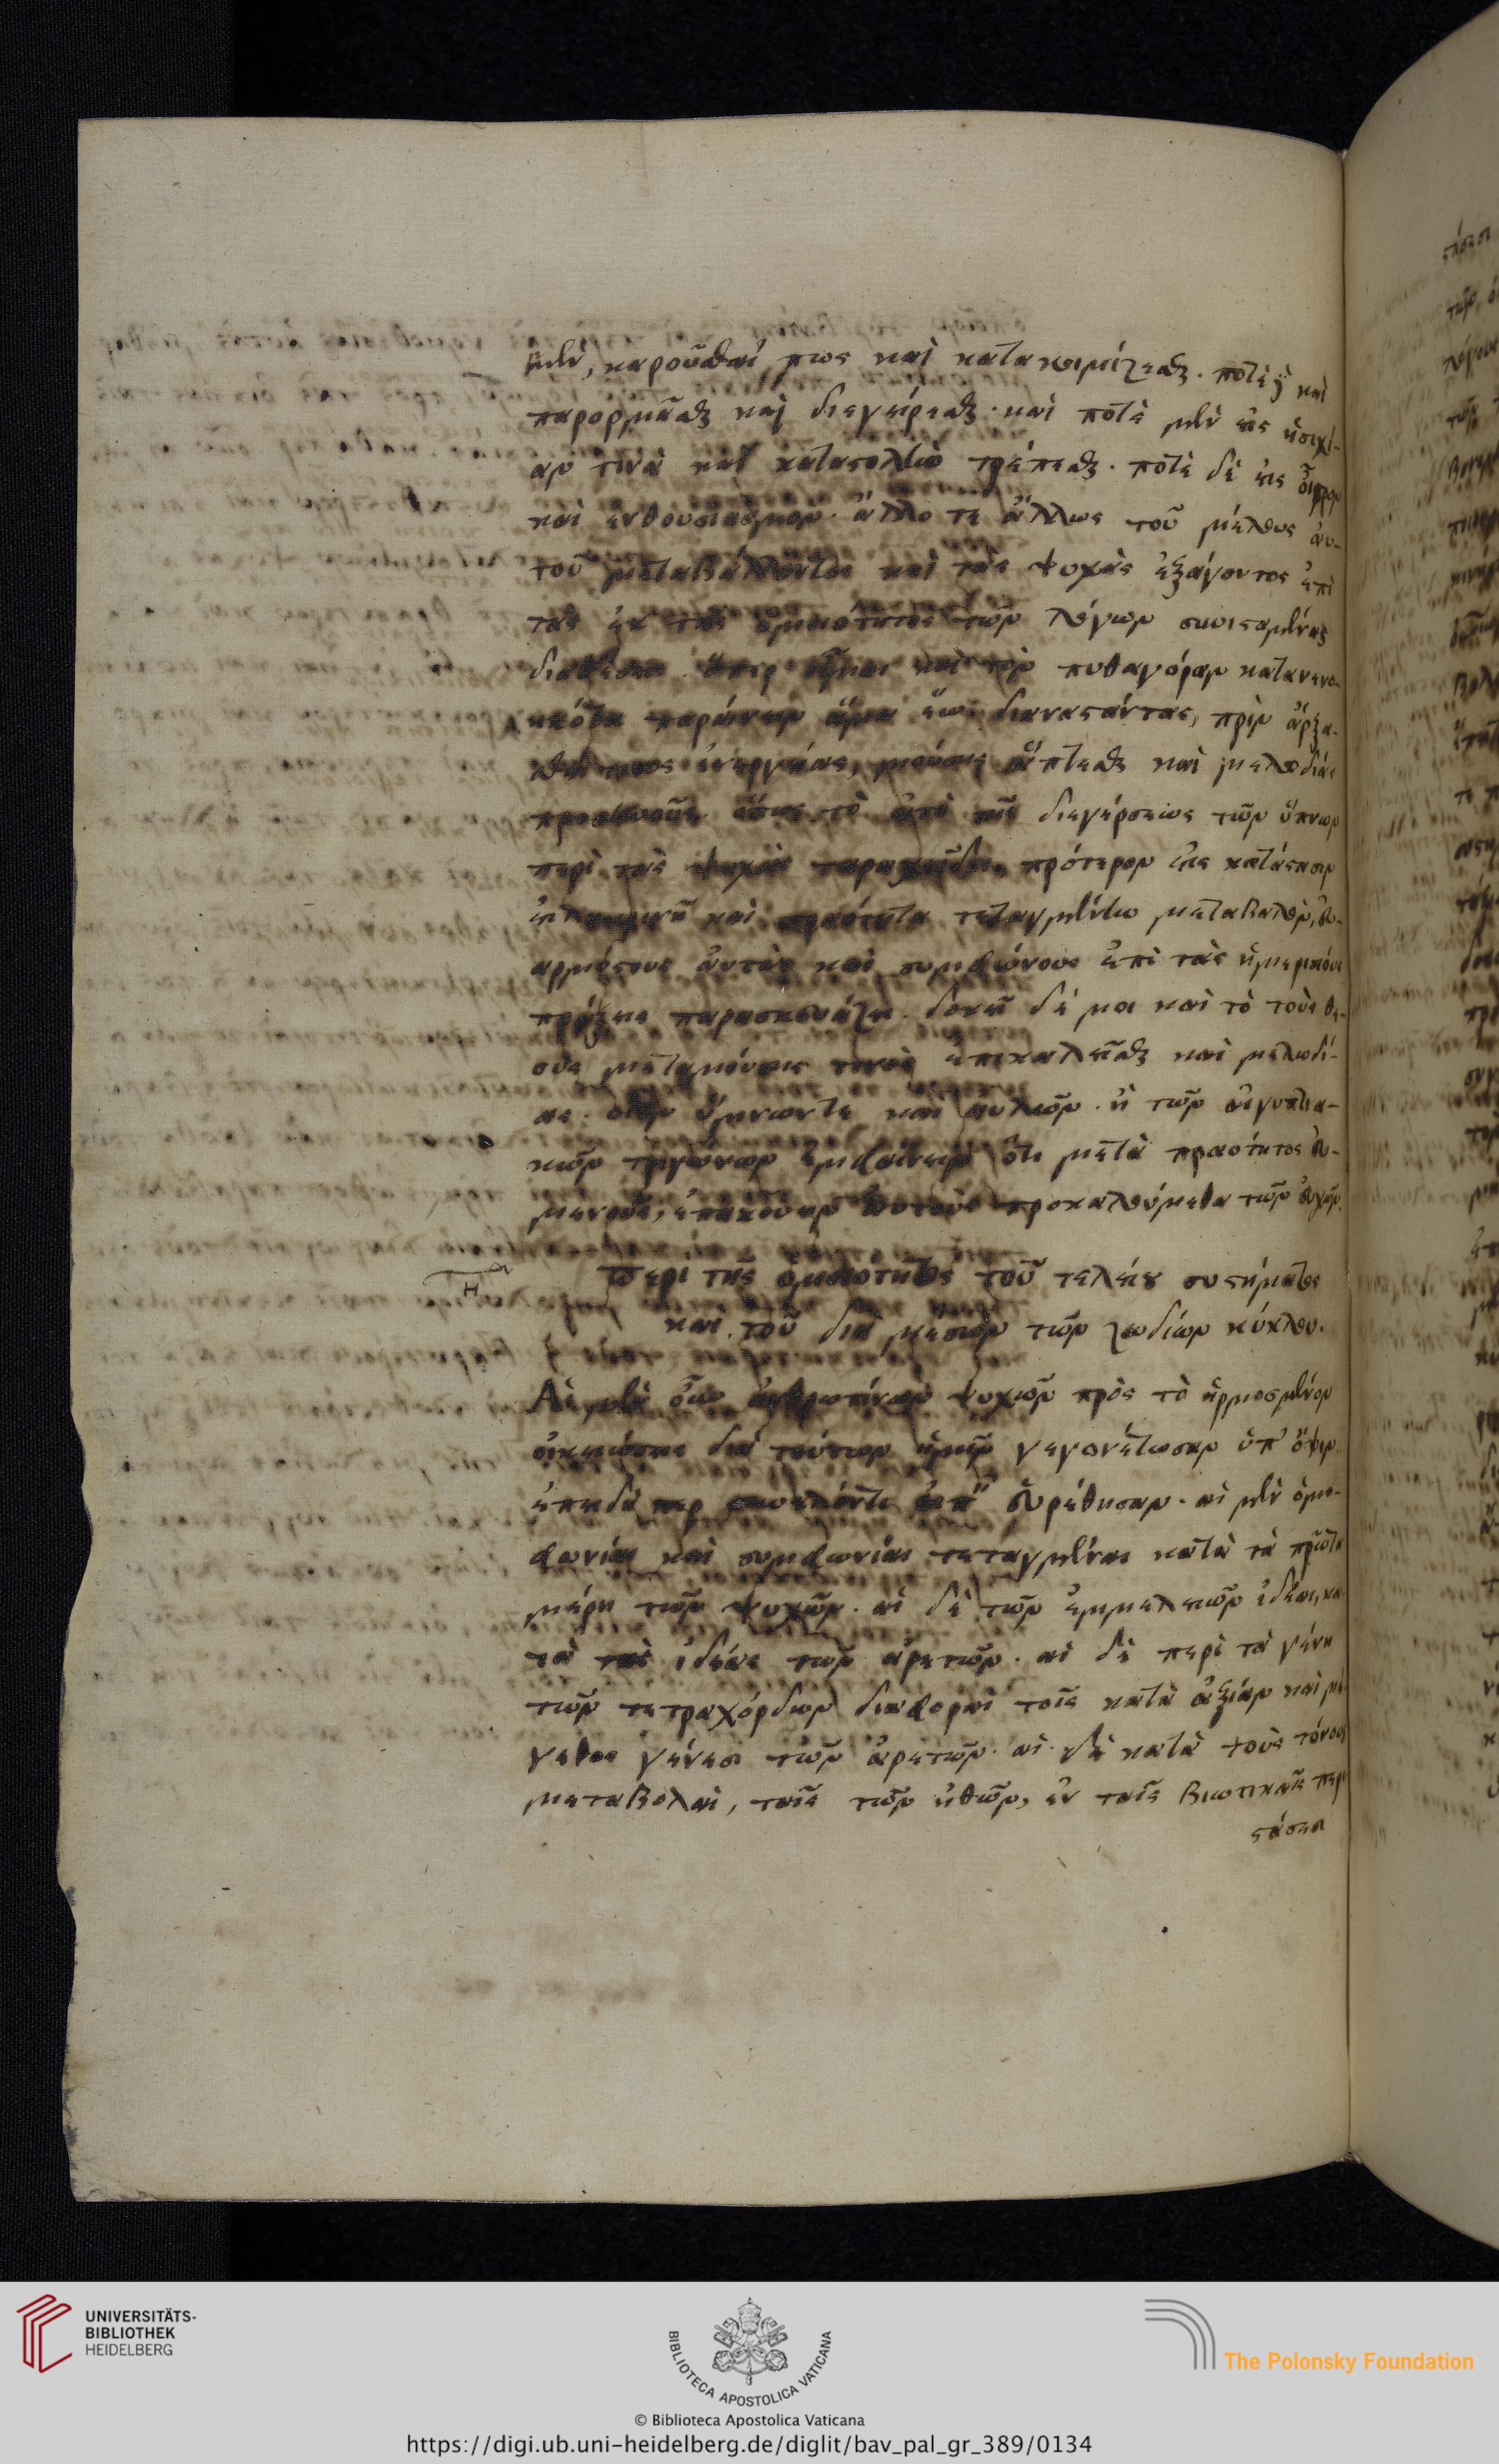 μὲν, καροῦσθαί πως καὶ κατακοιμίζεσθαι. ποτὲ δὲ καὶ
παρορμᾶσθαι καὶ διεγείρεσθαι. καὶ ποτὲ μὲν εἰς ἡσυχί-
αν τινὰ καὶ καταστολὴν τρέπεσθαι. ποτὲ δὲ εἰς οἶστρον
καὶ ἐνθουσιασμὸν. ἄλλοτε ἄλλως τοῦ μέλους αὐ-
τοῦ μεταβάλλοντος καὶ τὰς ψυχὰς ἐξάγοντος ἐπὶ
τὰς ἐκ τῆς ὁμοιότητος τῶν λόγων συνισταμένας
διαθέσεις. ὅπερ οἶμαι καὶ τὸν πυθαγόραν κατανενο-
ηκότα παραινεῖν ἅμα ἕω διαναστάντας, πρὶν ἄρξα-
σθαί τινος ἐνεργείας, μούσης ἅπτεσθαι καὶ μελῳδίας
προσηνοῦς ὅπως τὸ ἀπὸ τῆς διεγέρσεως τῶν ὕπνων
περὶ τὰς ψυχὰς ταραχῶδες, πρότερον εἰς κατάστασιν
εἰλικρινῆ καὶ πραότητα τεταγμένην μεταβαλὸν, εὐ-
αρμόστους αὐτὰς καὶ συμφώνους ἐπὶ τὰς ἡμερινὰς
πράξεις παρασκευάζῃ. δοκεῖ δέ μοι καὶ τὸ τοὺς θε-
οὺς μετα μούσης τινὸς ἐπικαλεῖσθαι καὶ μελωδί-
ας. οἷον ὕμνων τε καὶ αὐλῶν. ἢ τῶν αἰγυπτια-
κῶν τριγώνων ἐμφαίνειν ὅτι μετὰ πραότητος εὐ-
μενοῦς, ἐπακούειν αὐτοὺς προκαλούμεθα τῶν εὐχῶν.
Η
Περὶ τῆς ὁμοιότητος τοῦ τελείου συστήματος
καὶ τοῦ διὰ μέσων τῶν ζωδίων κύκλου.
Αἱ μὲν οὖν ἀνθρωπίνων ψυχῶν πρὸς τὸ ἡρμοσμένον
οἰκειώσεις διὰ τούτων ἡμῖν γεγονέτωσαν ὑπ' ὄψιν.
ἐπειδή περ συνελόντι εἰπεῖν εὑρέθησαν. αἱ μὲν ὁμο-
φωνίαι καὶ συμφωνίαι τεταγμέναι κατὰ τὰ πρῶτα
μέρη τῶν ψυχῶν. αἱ δὲ τῶν ἐμμελειῶν ἰδέαι, κα
τὰ τὰς ἰδέας τῶν ἀρετῶν. αἱ δὲ περὶ τὰ γένη
τῶν τετραχόρδων διαφοραὶ τοῖς κατὰ ἀξίαν καὶ μέ
γεθος γένεσι τῶν ἀρετῶν. αἱ δὲ κατὰ τοὺς τόνους
μεταβολαὶ, ταῖς τῶν ἠθῶν, ἐν ταῖς βιωτικαῖς περι
στάσεσι
UNIVERSITÄTS-
BIBLIOTHEK
HEIDELBERG
BIBLIOTECA APOSTOLICA VATICANA
The Polonsky Foundation
© Biblioteca Apostolica Vaticana
https://digi.ub.uni-heidelberg.de/diglit/bav_pal_gr_389/0134